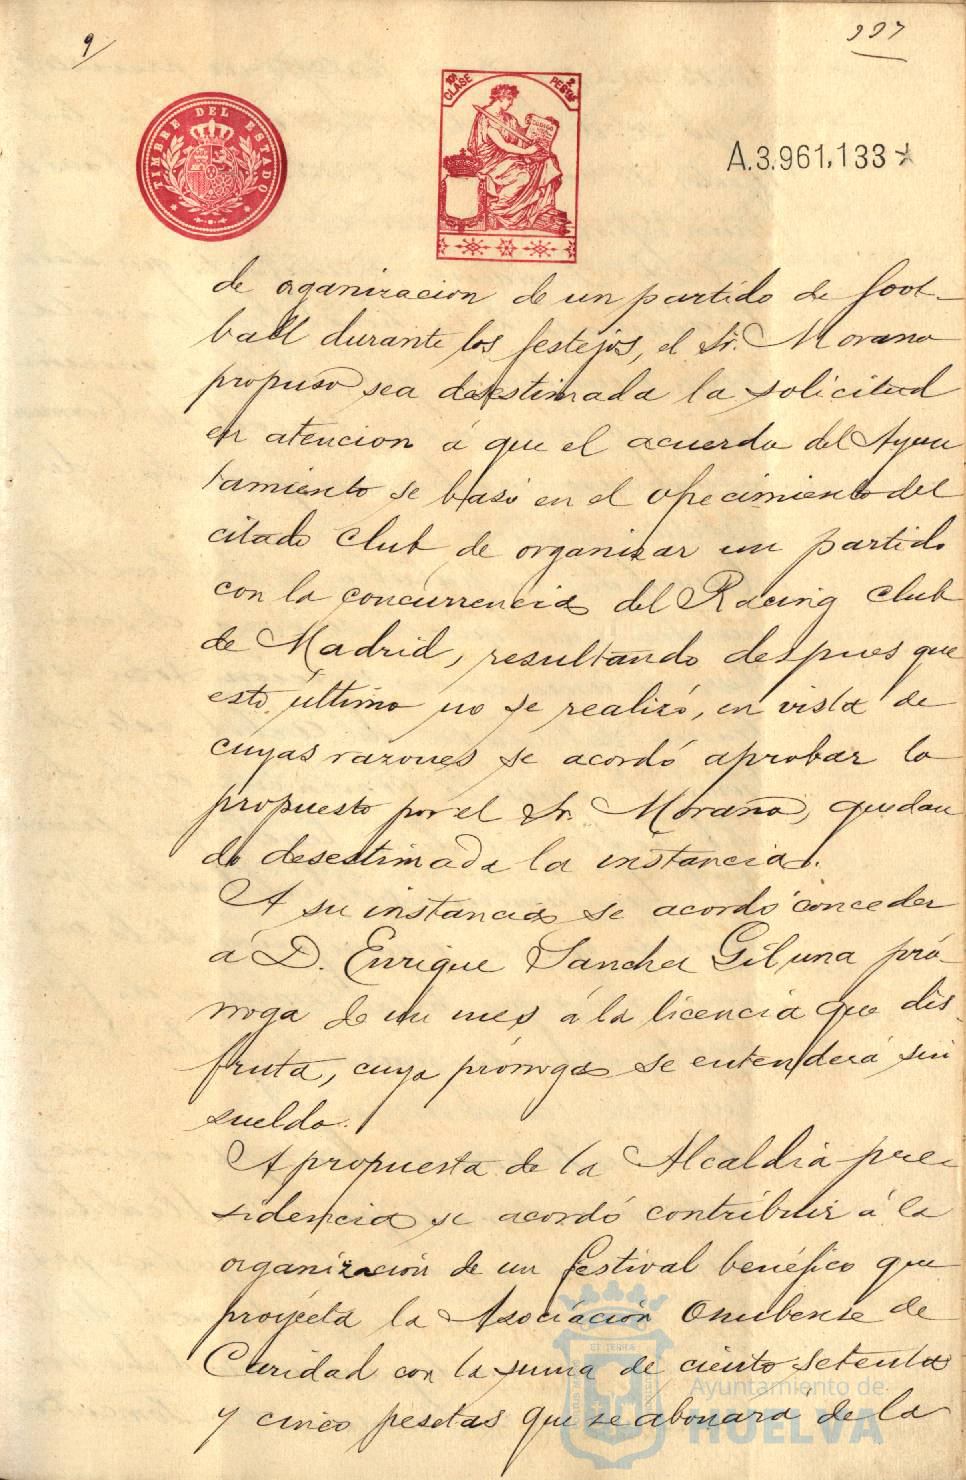 9
997
TIMBRE DEL ESTADO
10ª CLASE
2 PESETAS
A.3.961,133
de organizacion de un partido de foot-
ball durante los festejos, el Sr. Morano
propuso sea desestimada la solicitud
en atencion á que el acuerdo del Ayun
tamiento se basó en el ofrecimiento del
citado Club de organizar un partido
con la concurrencia del Racing Club
de Madrid, resultando despues que
esto último no se realizó, en vista de
cuyas razones se acordó aprobar lo
propuesto por el Sr. Morano, quedan
do desestimada la instancia.
A su instancia se acordó conceder
á D. Enrique Sanchez Gil una pró-
rroga de un mes á la licencia que dis-
fruta, cuya prórroga se entenderá sin
sueldo.
A propuesta de la Alcaldia pre-
sidencia se acordó contribuir á la
organización de un festival benéfico que
proyecta la Asociación Onubense de
Caridad con la suma de ciento setenta
y cinco pesetas que se abonará de la
Ayuntamiento de
HUELVA